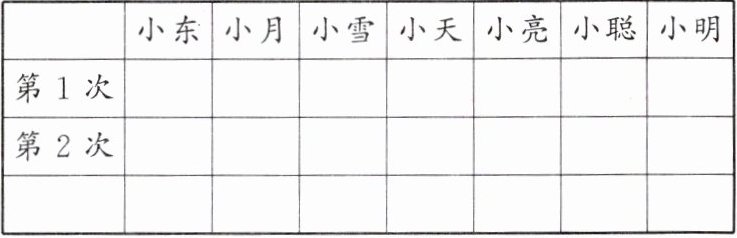 小东 小月 小雪 小天 小亮 小聪 小明
第1次
第2次